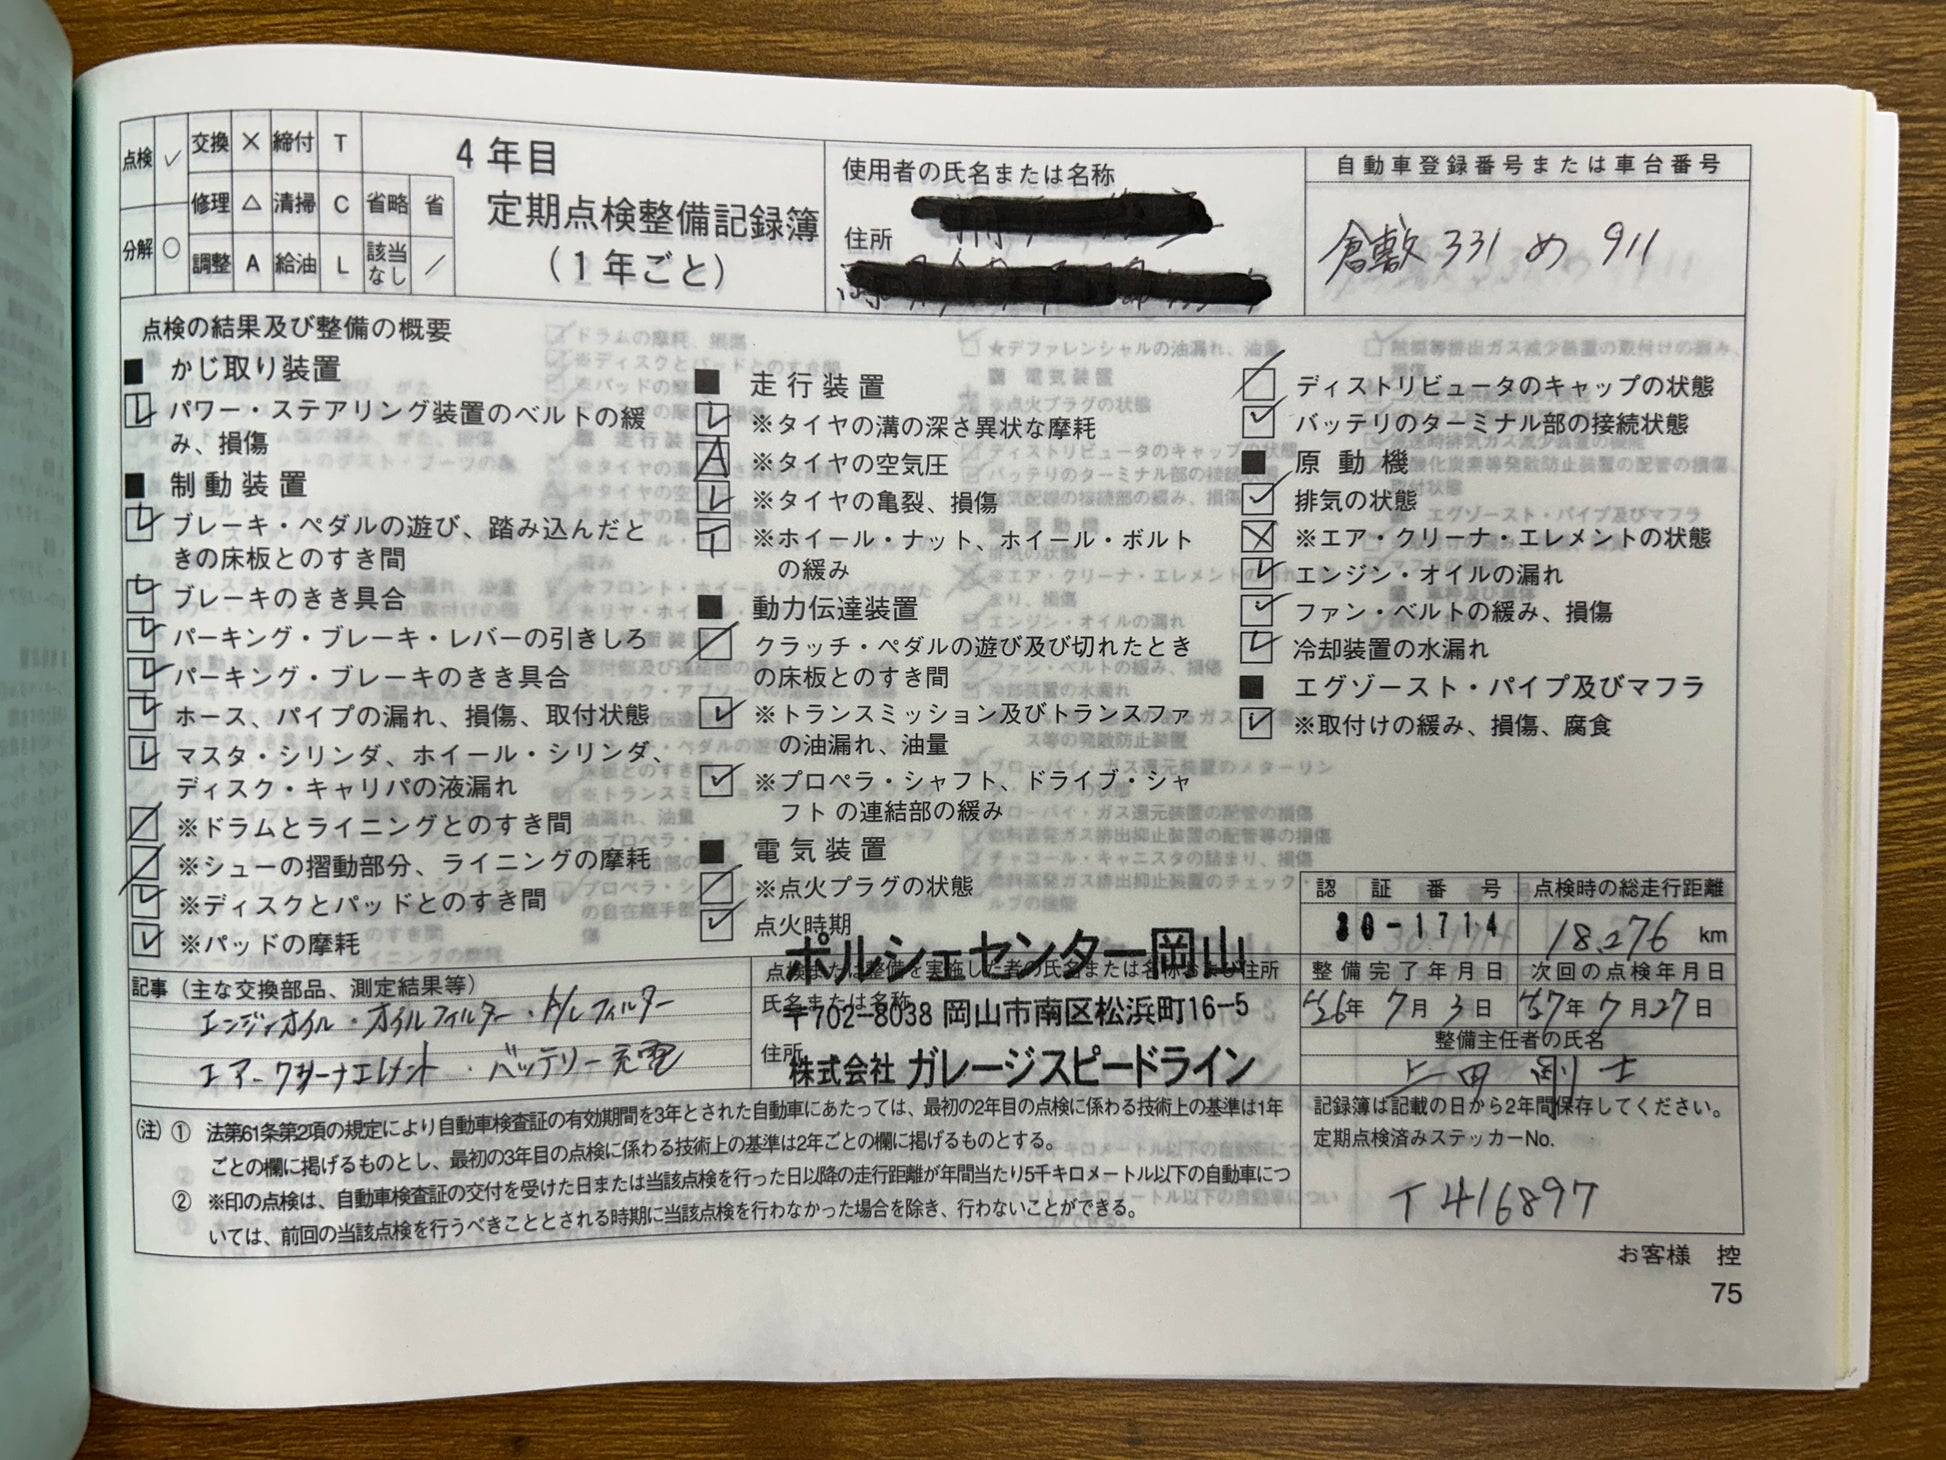 点検 ✓ 交換 × 締付 T
修理 △ 清掃 C 省略 省
分解 ○ 調整 A 給油 L 該当なし ／
4年目
定期点検整備記録簿
(1年ごと)
使用者の氏名または名称
住所
自動車登録番号または車台番号
倉敷 331 め 911
点検の結果及び整備の概要
■ かじ取り装置
パワー・ステアリング装置のベルトの緩
み、損傷
■ 制動装置
ブレーキ・ペダルの遊び、踏み込んだと
きの床板とのすき間
ブレーキのきき具合
パーキング・ブレーキ・レバーの引きしろ
パーキング・ブレーキのきき具合
ホース、パイプの漏れ、損傷、取付状態
マスタ・シリンダ、ホイール・シリンダ、
ディスク・キャリパの液漏れ
※ドラムとライニングとのすき間
※シューの摺動部分、ライニングの摩耗
※ディスクとパッドとのすき間
※パッドの摩耗
■ 走行装置
※タイヤの溝の深さ異状な摩耗
A ※タイヤの空気圧
※タイヤの亀裂、損傷
T ※ホイール・ナット、ホイール・ボルト
の緩み
■ 動力伝達装置
クラッチ・ペダルの遊び及び切れたとき
の床板とのすき間
※トランスミッション及びトランスファ
の油漏れ、油量
※プロペラ・シャフト、ドライブ・シャ
フトの連結部の緩み
■ 電気装置
※点火プラグの状態
点火時期
ディストリビュータのキャップの状態
バッテリのターミナル部の接続状態
■ 原動機
排気の状態
※エア・クリーナ・エレメントの状態
エンジン・オイルの漏れ
ファン・ベルトの緩み、損傷
冷却装置の水漏れ
■ エグゾースト・パイプ及びマフラ
※取付けの緩み、損傷、腐食
認証番号
30-1714
点検時の総走行距離
18,276 km
整備完了年月日
年 7月 3日
次回の点検年月日
年 7月27日
整備主任者の氏名
上田 剛士
記録簿は記載の日から2年間保存してください。
定期点検済みステッカーNo.
T416897
記事(主な交換部品、測定結果等)
エンジンオイル・オイルフィルター・A/Cフィルター
エアークリーナエレメント・バッテリー充電
点検または整備を実施した者の氏名または名称および住所
ポルシェセンター岡山
氏名または名称
〒702-8038 岡山市南区松浜町16-5
住所
株式会社 ガレージスピードライン
(注) ① 法第61条第2項の規定により自動車検査証の有効期間を3年とされた自動車にあたっては、最初の2年目の点検に係わる技術上の基準は1年
ごとの欄に掲げるものとし、最初の3年目の点検に係わる技術上の基準は2年ごとの欄に掲げるものとする。
② ※印の点検は、自動車検査証の交付を受けた日または当該点検を行った日以降の走行距離が年間当たり5千キロメートル以下の自動車につ
いては、前回の当該点検を行うべきこととされる時期に当該点検を行わなかった場合を除き、行わないことができる。
お客様 控
75